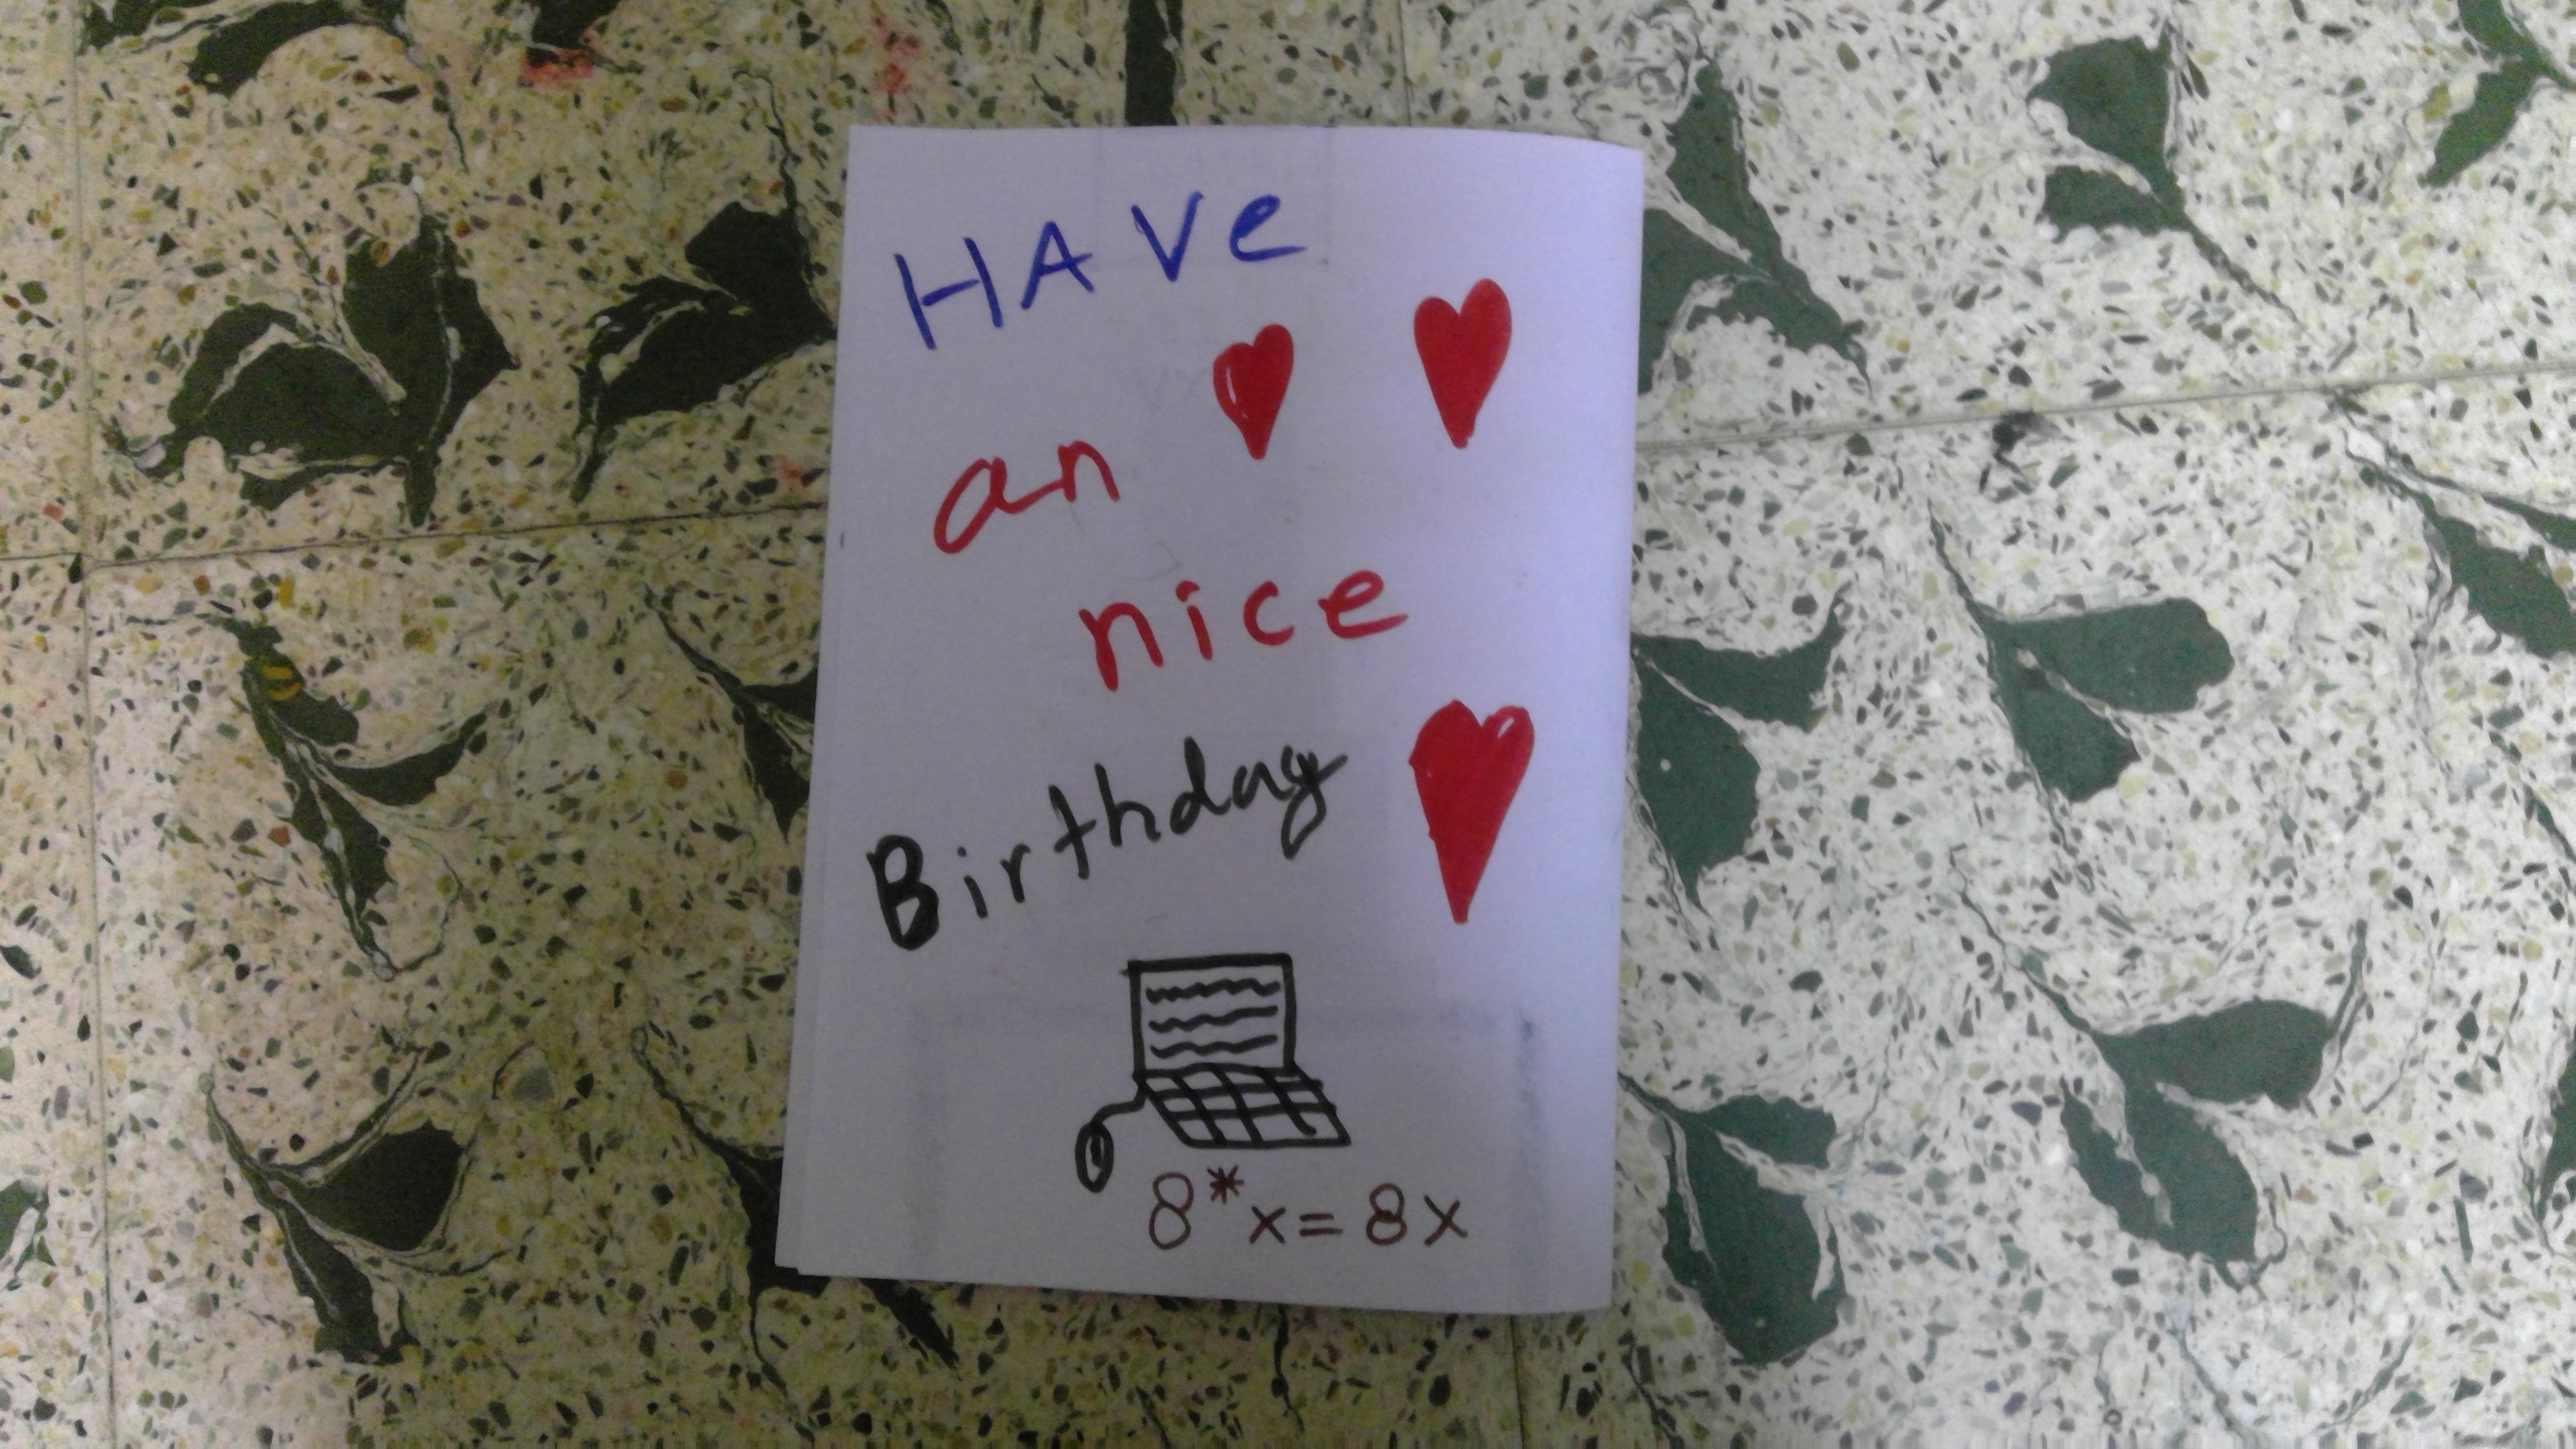 HAVe
an
nice
Birthday
8*x=8x